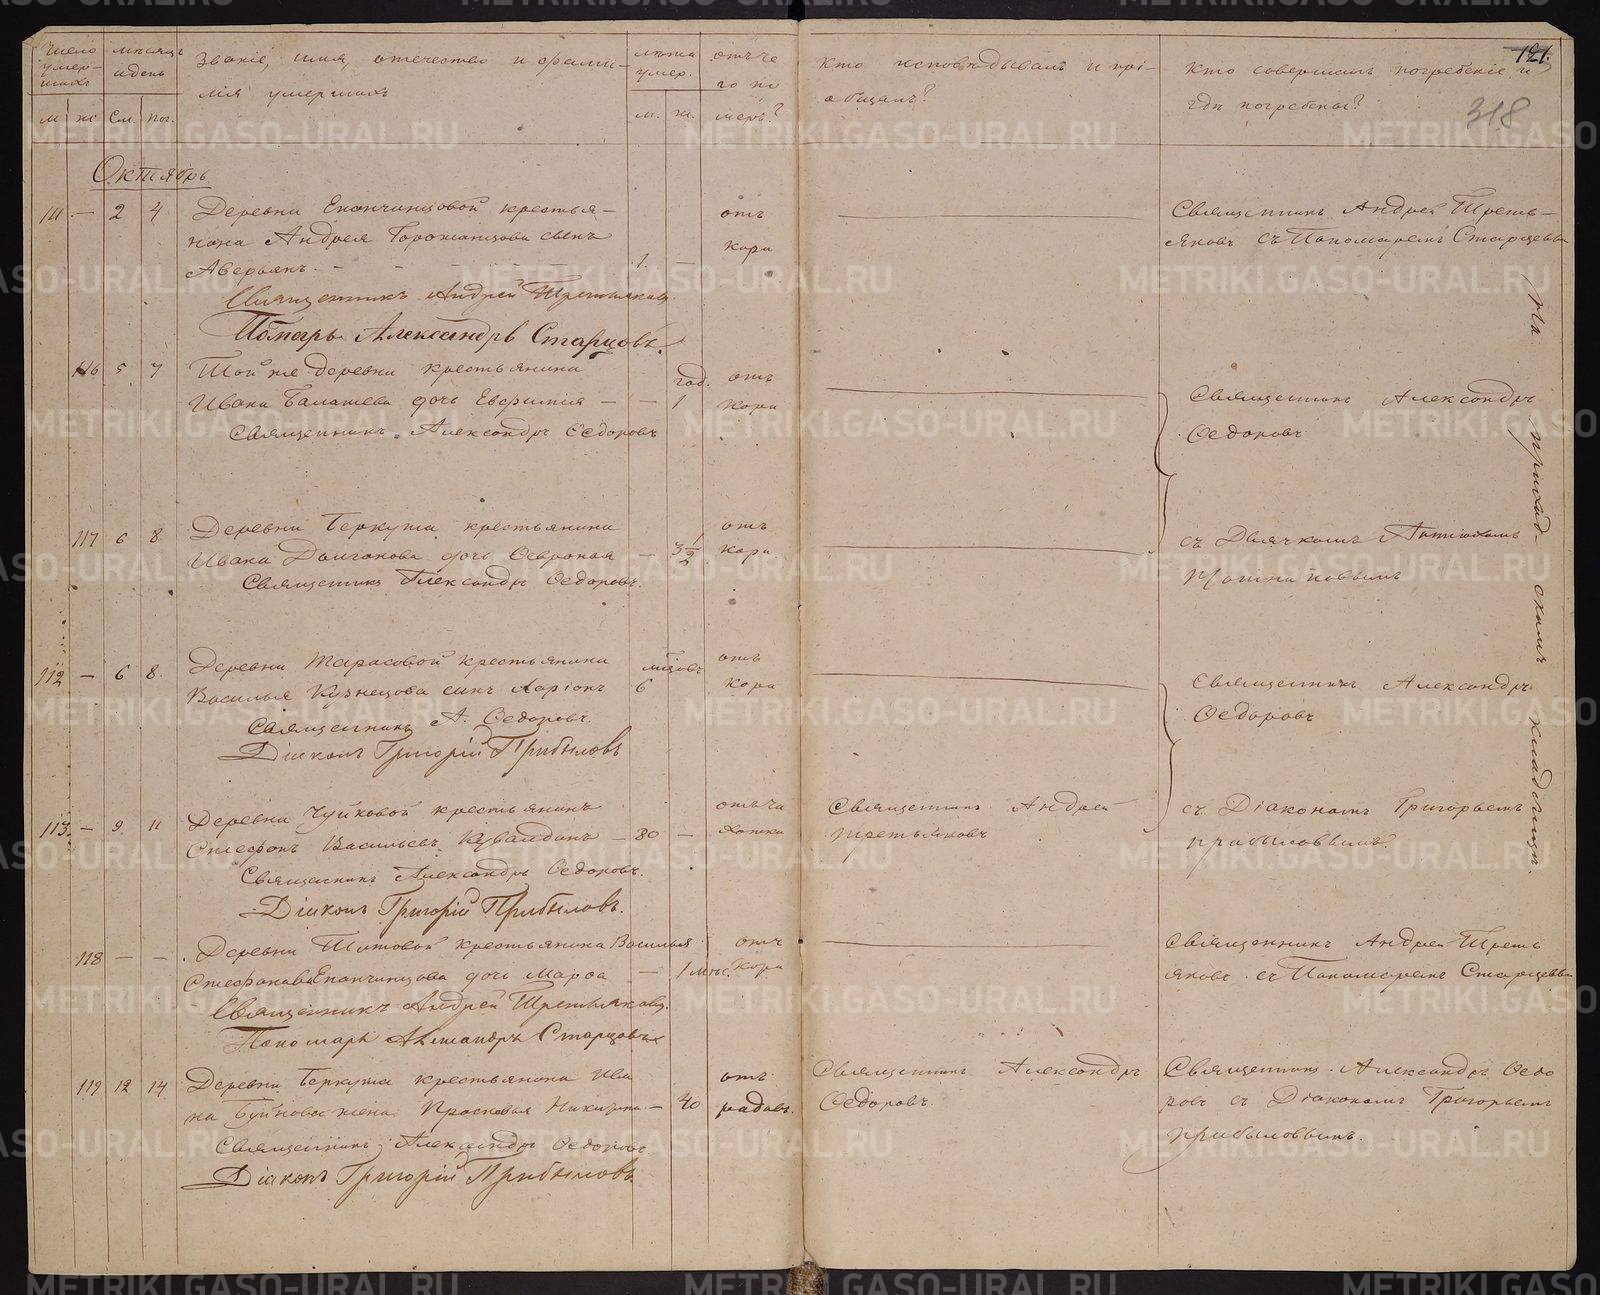 Число умер-шихъ
мѣсяцъ и день
Званіе, имя, отечество и фами-
лія умершихъ
лѣта умер.
отъ че
го по
меръ?
Кто исповѣдывалъ и прі-
общалъ?
Кто совершалъ погребеніе и
гдѣ погребены?
121.
318
м ж См. Пог. м. ж.
Октябрь
111 — 2 4 Деревни Епанчинцовой крестья-
нина Андрея сынъ
Аверьянъ. — 1. —
отъ
кори
Священникъ Андрей Треть-
яковъ съ Пономаремъ Старцевымъ
Священникъ Андрей Третьяковъ
Пономарь Александръ Старцовъ.
116 5 7 Той же деревни крестьянина
Ивана Балашева дочь Евфимія — — год. 1
отъ
кори
Священникъ Александръ Ѳедоровъ
Священникъ Александръ
Ѳедоровъ
117 6 8 Деревни Беркута крестьянина
Ивана Долганова дочь — 3 1/2
отъ
кори.
Священникъ Александръ Ѳедоровъ.
съ Дьячкомъ
112 — 6 8. Деревни Тарасовой крестьянина
Василья Кузнецова сынъ Ларіонъ мѣсяцовъ 6
отъ
кори
Священникъ А. Ѳедоровъ.
Діаконъ Григорій Прибыловъ
Священникъ Александръ
Ѳедоровъ
113. — 9. 11 Деревни Чуйковой крестьянинъ
Стефанъ Васильевъ Кувалдинъ — 80 —
отъ ча
хотки
Священникъ Андрей
Третьяковъ
съ Діакономъ Григорьемъ
Прибыловымъ.
Священникъ Александръ Ѳедоровъ.
Діаконъ Григорій Прибыловъ.
118 — — Деревни Титовой крестьянина Василья
Стефанова Епанчинцова дочь Марѳа — 1 мѣс.
отъ
кори
Священникъ Андрей Треть
яковъ съ Пономаремъ Старцевымъ
Священникъ Андрей Третьяковъ.
Пономарь Александръ Старцовъ
119 12 14 Деревни Беркута крестьянина Ива
на Буйнова жена Прасковья Никитина — 40
отъ
родовъ.
Священникъ Александръ
Ѳедоровъ.
Священникъ Александръ Ѳедо
ровъ съ Діакономъ Григорьемъ
Прибыловымъ.
Священникъ Александръ Ѳедоровъ
Діаконъ Григорій Прибыловъ.
На приход-скомъ кладбищѣ.
METRIKI.GASO-URAL.RU